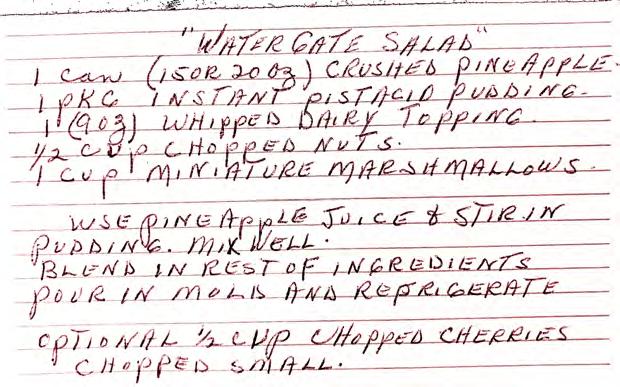 "WATERGATE SALAD"
1 can (15 OR 20 oz) CRUSHED PINEAPPLE.
1 PKG INSTANT PISTACIO PUDDING.
1 (9 oz) WHIPPED DAIRY TOPPING.
1/2 CUP CHOPPED NUTS.
1 CUP MINIATURE MARSHMALLOWS.
USE PINEAPPLE JUICE & STIR IN
PUDDING. MIX WELL.
BLEND IN REST OF INGREDIENTS
POUR IN MOLD AND REFRIGERATE
OPTIONAL 1/2 CUP CHOPPED CHERRIES
CHOPPED SMALL.